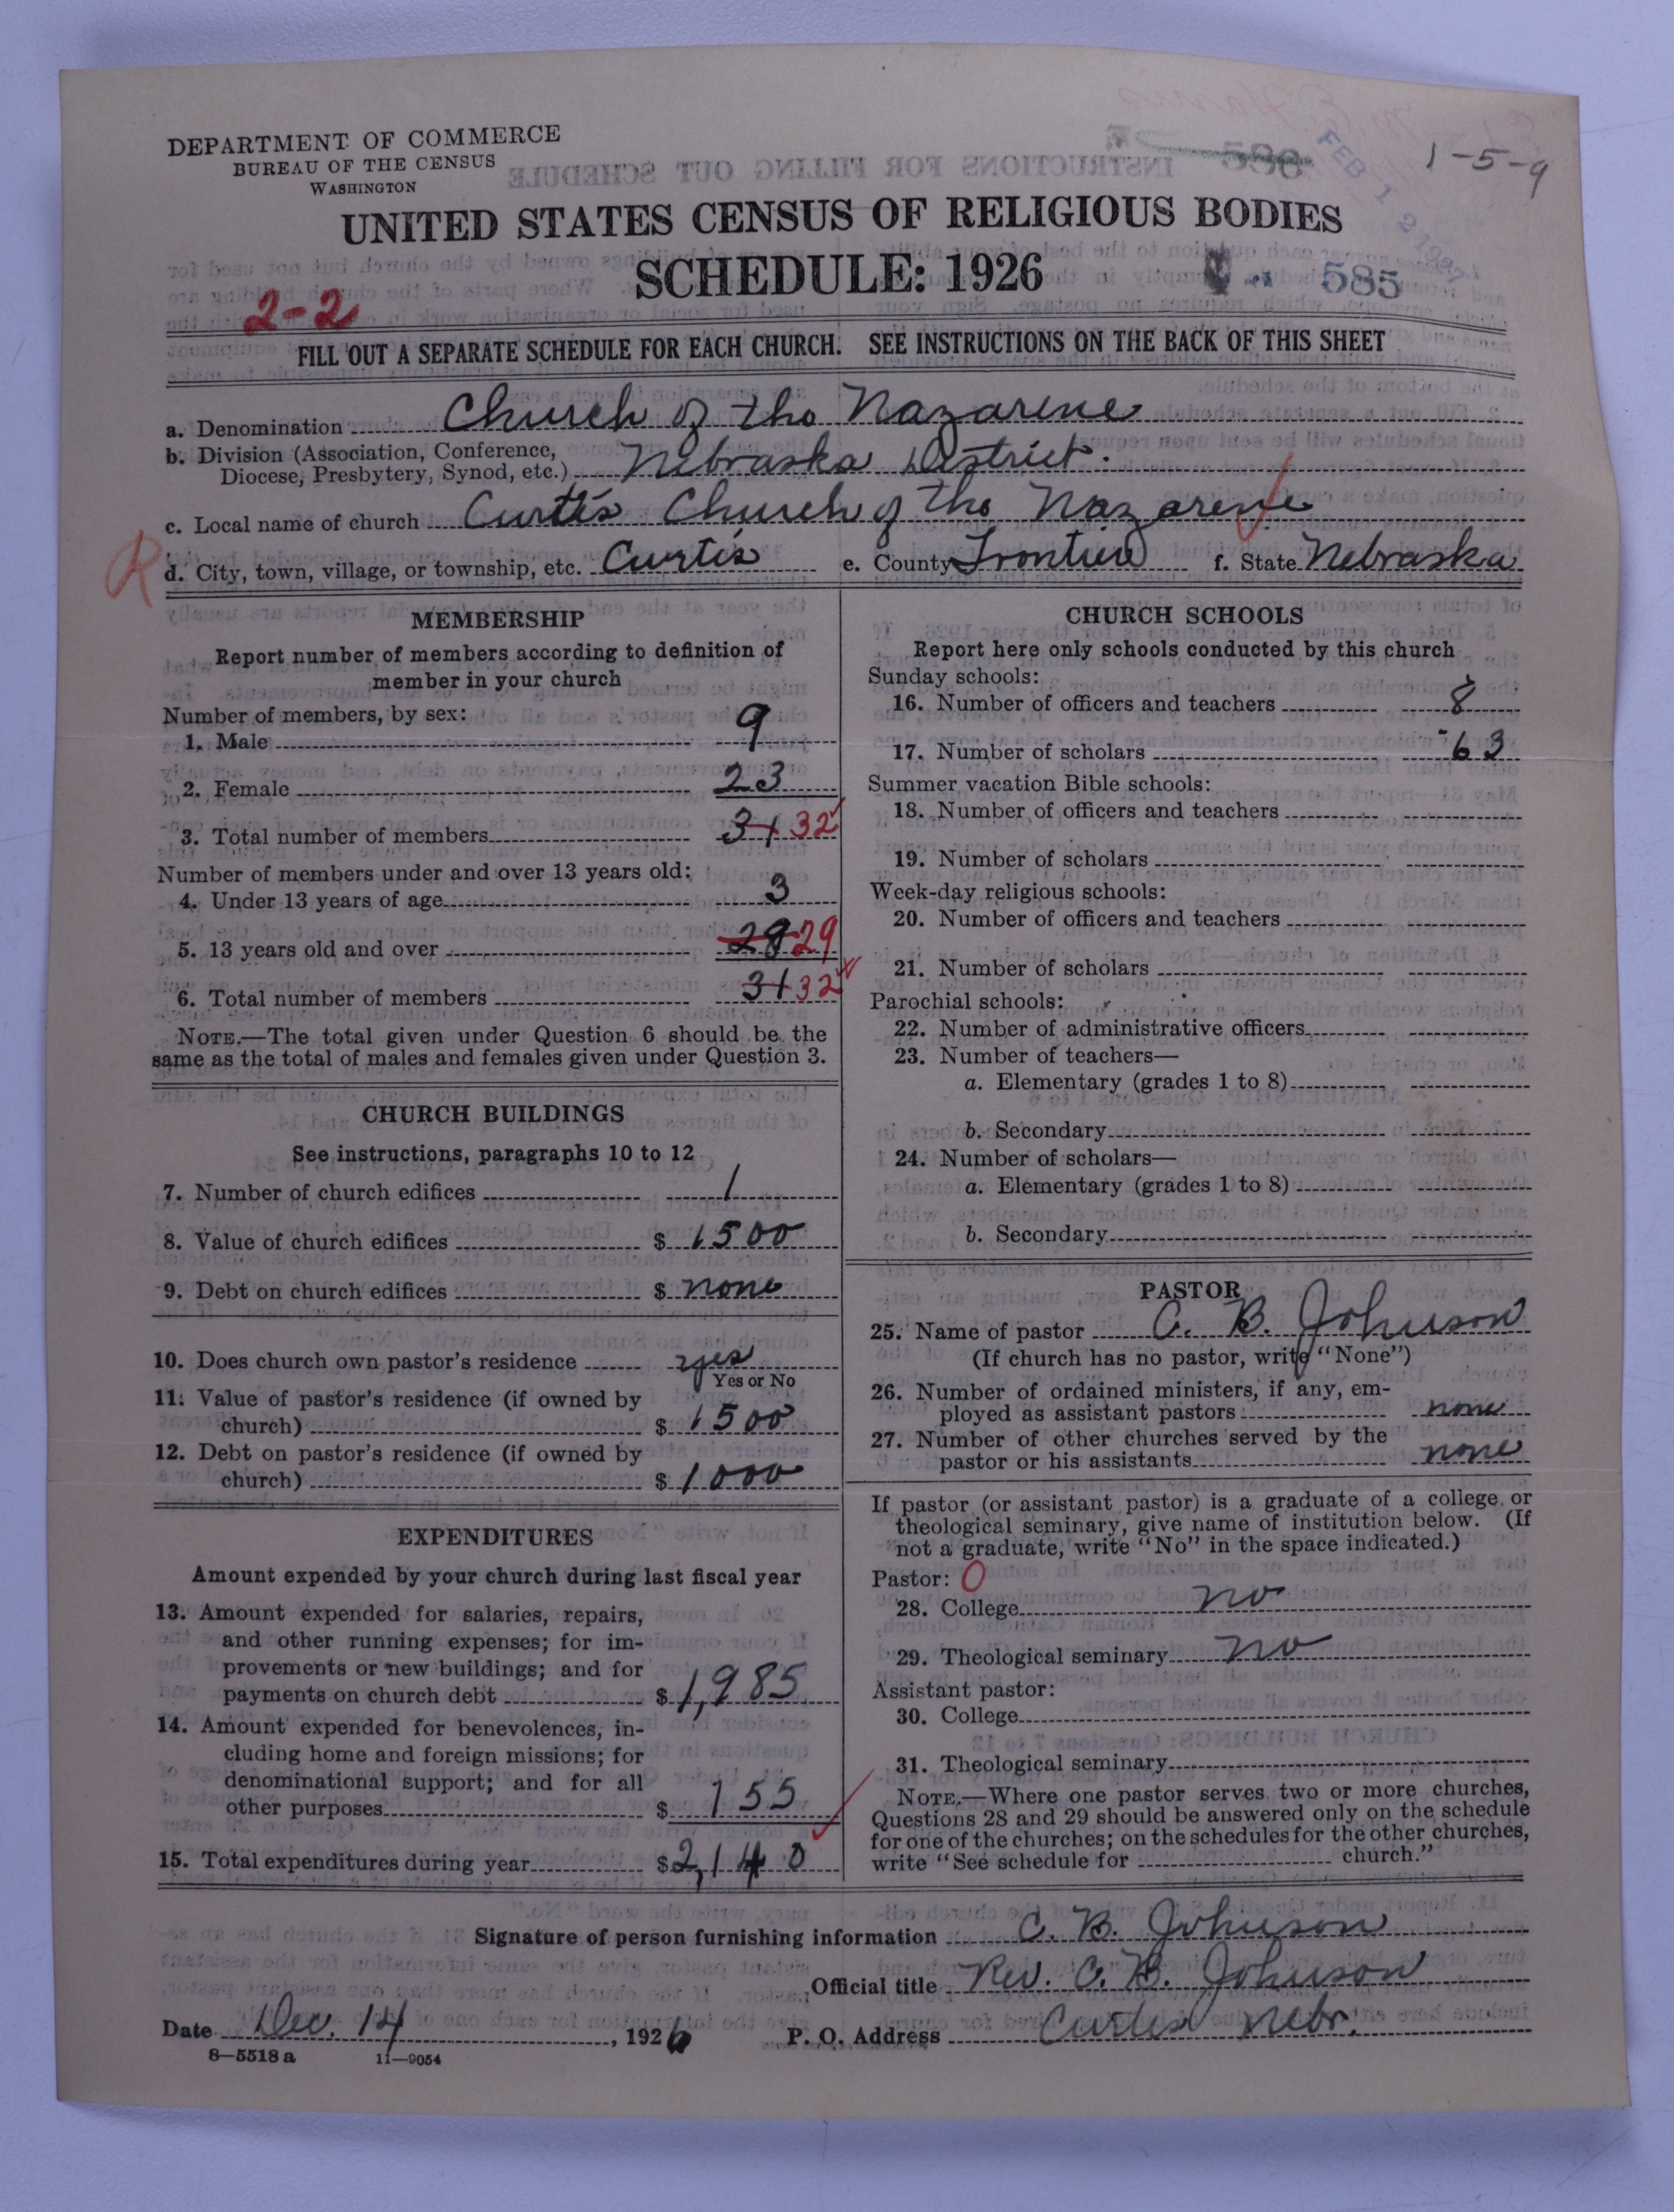 DEPARTMENT OF COMMERCE
BUREAU OF THE CENSUS
WASHINGTON
1-5-9
FEB 12 1927
UNITED STATES CENSUS OF RELIGIOUS BODIES
SCHEDULE: 1926
585
2-2
FILL OUT A SEPARATE SCHEDULE FOR EACH CHURCH. SEE INSTRUCTIONS ON THE BACK OF THIS SHEET
a. Denomination Church of the Nazarene
b. Division (Association, Conference,
Diocese, Presbytery, Synod, etc.) Nebraska District.
c. Local name of church Curtis Church of the Nazarene
R
d. City, town, village, or township, etc. Curtis e. County Frontier f. State Nebraska
MEMBERSHIP
Report number of members according to definition of
member in your church
Number of members, by sex:
1. Male 9
2. Female 23
3. Total number of members 31 32
Number of members under and over 13 years old:
4. Under 13 years of age 3
5. 13 years old and over 28 29
6. Total number of members 31 32
NOTE.—The total given under Question 6 should be the
same as the total of males and females given under Question 3.
CHURCH BUILDINGS
See instructions, paragraphs 10 to 12
7. Number of church edifices 1
8. Value of church edifices $ 1500
9. Debt on church edifices $ none
10. Does church own pastor's residence yes
Yes or No
11. Value of pastor's residence (if owned by
church) $ 1500
12. Debt on pastor's residence (if owned by
church) $ 1000
EXPENDITURES
Amount expended by your church during last fiscal year
13. Amount expended for salaries, repairs,
and other running expenses; for im-
provements or new buildings; and for
payments on church debt $ 1,985
14. Amount expended for benevolences, in-
cluding home and foreign missions; for
denominational support; and for all
other purposes $ 155
15. Total expenditures during year $ 2,140
CHURCH SCHOOLS
Report here only schools conducted by this church
Sunday schools:
16. Number of officers and teachers 8
17. Number of scholars 63
Summer vacation Bible schools:
18. Number of officers and teachers
19. Number of scholars
Week-day religious schools:
20. Number of officers and teachers
21. Number of scholars
Parochial schools:
22. Number of administrative officers
23. Number of teachers—
a. Elementary (grades 1 to 8)
b. Secondary
24. Number of scholars—
a. Elementary (grades 1 to 8)
b. Secondary
PASTOR
25. Name of pastor C. B. Johnson
(If church has no pastor, write "None")
26. Number of ordained ministers, if any, em-
ployed as assistant pastors none
27. Number of other churches served by the
pastor or his assistants none
If pastor (or assistant pastor) is a graduate of a college or
theological seminary, give name of institution below. (If
not a graduate, write "No" in the space indicated.)
Pastor: 0
28. College no
29. Theological seminary no
Assistant pastor:
30. College
31. Theological seminary
NOTE.—Where one pastor serves two or more churches,
Questions 28 and 29 should be answered only on the schedule
for one of the churches; on the schedules for the other churches,
write "See schedule for church."
Signature of person furnishing information C. B. Johnson
Official title Rev. C. B. Johnson
Date Dec. 14, 1926 P. O. Address Curtis Nebr.
8—5518 a 11—9054